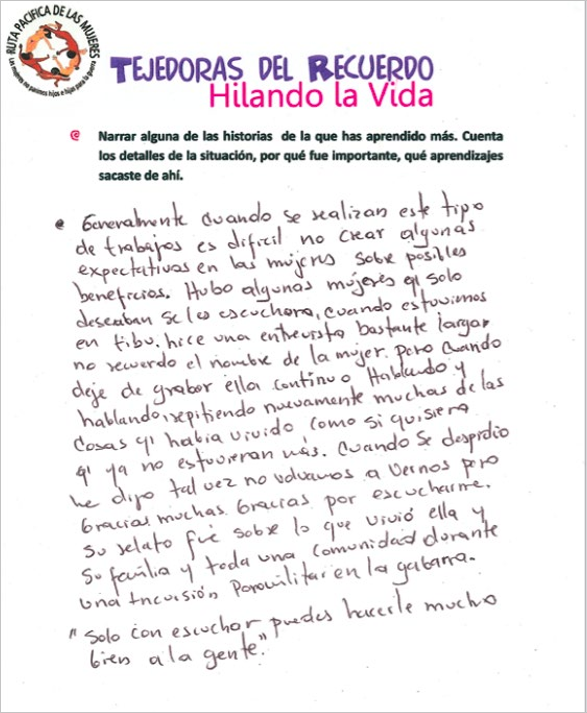 RUTA PACIFICA DE LAS MUJERES
Las mujeres no parimos hijos e hijas para la guerra
TEJEDORAS DEL RECUERDO
Hilando la Vida
@ Narrar alguna de las historias de la que has aprendido más. Cuenta
los detalles de la situación, por qué fue importante, qué aprendizajes
sacaste de ahí.
• Generalmente cuando se realizan este tipo
de trabajos es dificil no crear algunas
expectativas en las mujeres sobre posibles
beneficios. Hubo algunas mujeres q' solo
deseaban se les escuchara, cuando estuvimos
en tibu. hice una entrevista bastante larga,
no recuerdo el nombre de la mujer. pero cuando
deje de grabar ella continuo Hablando y
hablando, repitiendo nuevamente muchas de las
cosas q' habia vivido como si quisiera
q' ya no estuvieran más. Cuando se despidio
me dijo tal vez no volvamos a vernos pero
Gracias. muchas Gracias por escucharme.
Su relato fué sobre lo que vivió ella y
Su familia y toda una comunidad durante
una Incursión Paramilitar en la gabarra.
"Solo con escuchar puedes hacerle mucho
bien a la gente."